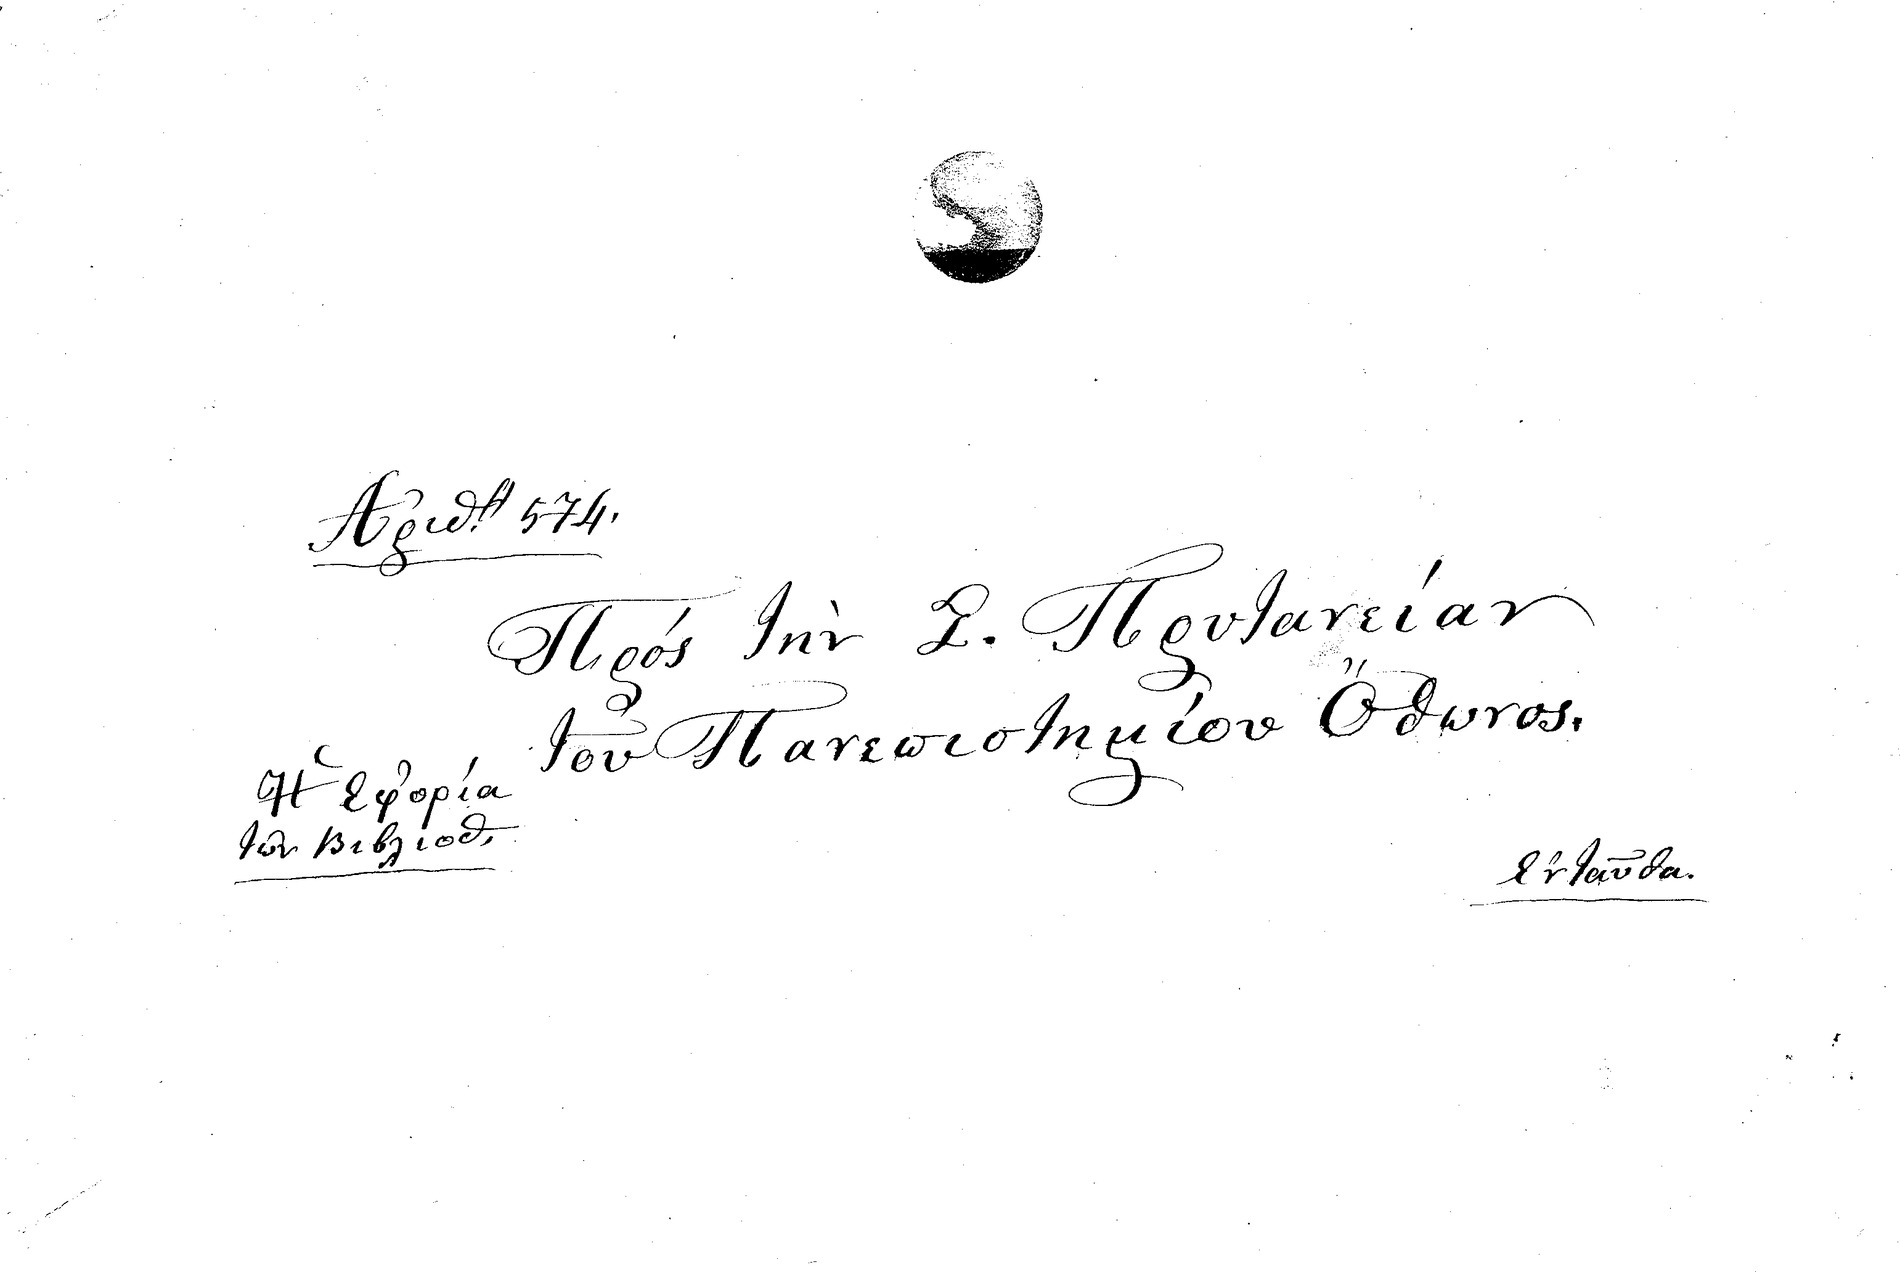 Ἀριθ. 574.
Πρός τὴν Σ. Πρυτανείαν
τοῦ Πανεπιστημίου Ὄθωνος.
Ἡ Ἐφορία
τῶν Βιβλιοθ.
Ἐνταῦθα.